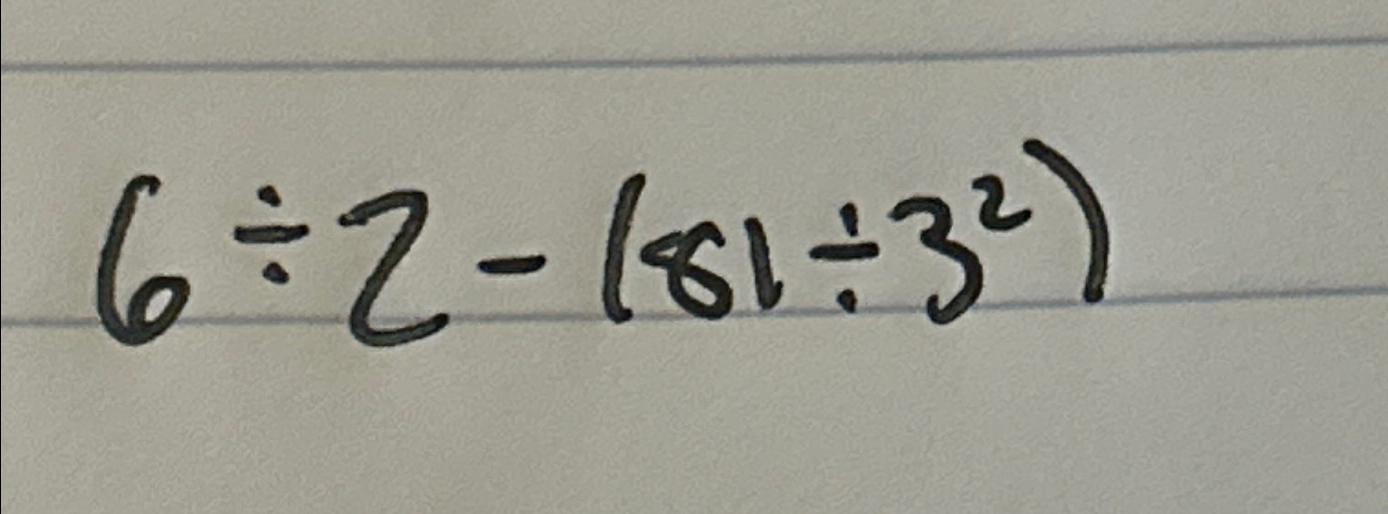 6 ÷ 2 - (81 ÷ 3²)